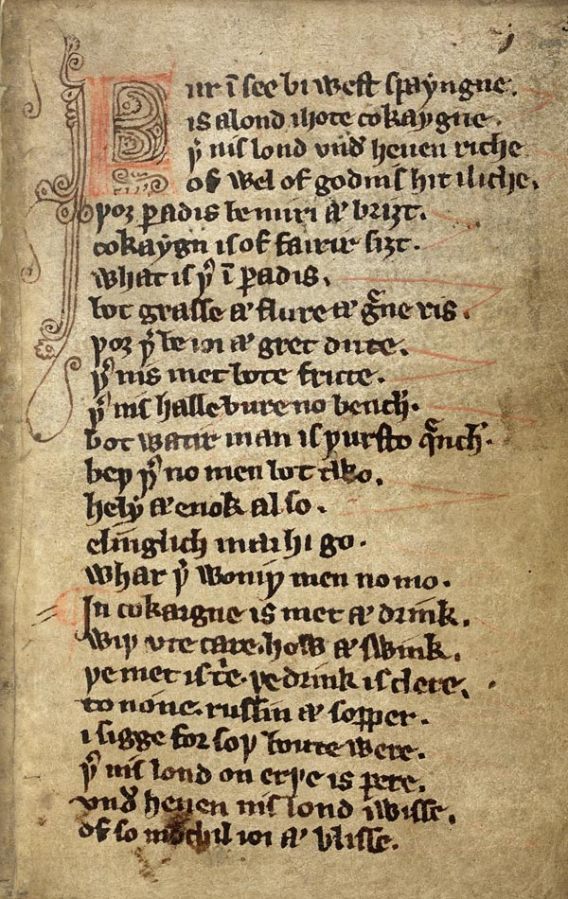 Fur ī see bi west spayngne.
is a lond ihote cokaygne.
þʳ nis lond vndʳ heuen riche
of wel of godnis hit iliche.
þoȝ ꝑadis be miri ⁊ briȝt.
cokaygn is of fairir siȝt.
what is þʳ ī ꝑadis.
bot grasse ⁊ flure ⁊ gͤne ris.
þoȝ þʳ be ioi ⁊ gret dute.
þʳ nis met bote frute.
þʳ nis halle bure no bench.
bot watir man is þursto qͣnch.
beþ þʳ no men bot two.
hely ⁊ enok also.
elīglich mai hi go.
whar þʳ woniþ men no mo.
In cokaigne is met ⁊ drink.
wiþ vte care. how ⁊ swink.
þe met is tͥe. þe drink is clere.
to none. russin ⁊ sopper.
i sigge for soþ boute were.
þʳ nis lond on erþe is pere.
vndʳ heuen nis lond iwisse.
of so mochil ioi ⁊ blisse.